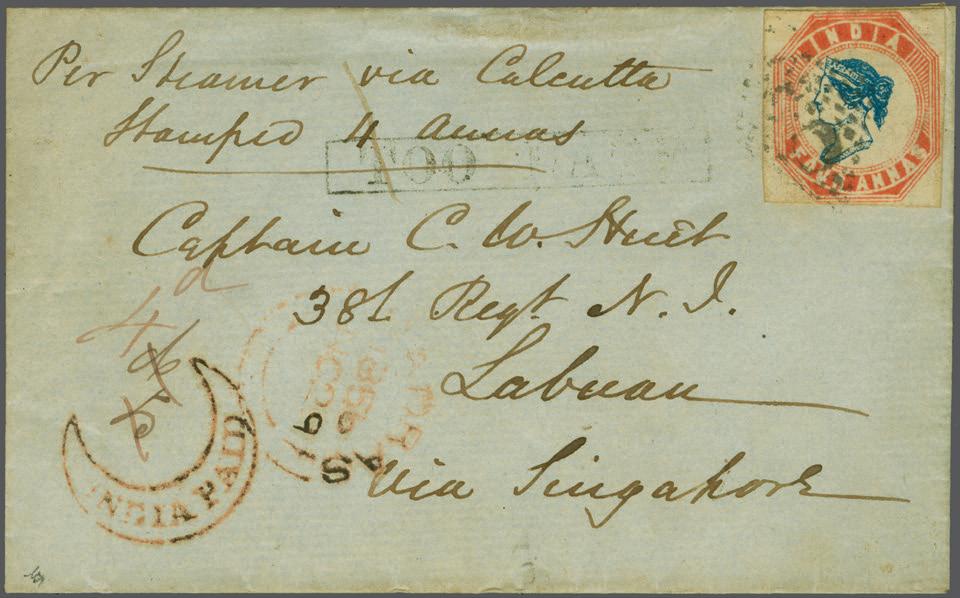 Per Steamer via Calcutta
Stamped 4 Annas
TOO LATE
INDIA
FOUR ANNAS
Captain C. W. Street
38th Regt N. I.
Labuan
via Singapore
4d
INDIA PAID